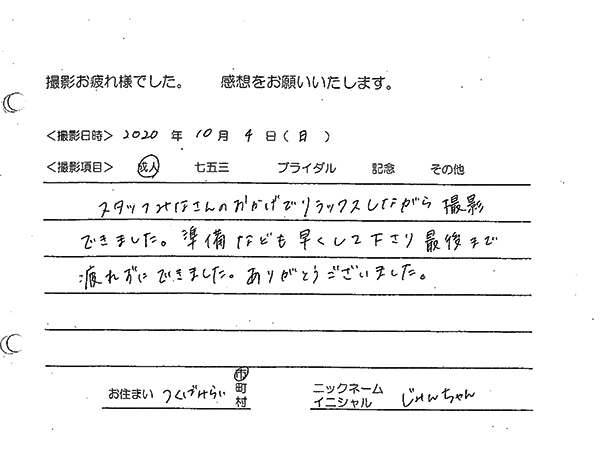 撮影お疲れ様でした。 感想をお願いいたします。
<撮影日時> 2020 年 10 月 4 日 ( 日 )
<撮影項目> 成人 七五三 ブライダル 記念 その他
スタッフみなさんのおかげでリラックスしながら 撮影
できました。準備なども早くして下さり 最後まで
疲れずにできました。ありがとうございました。
お住まい つくばみらい 市 町 村
ニックネーム イニシャル じゅんちゃん